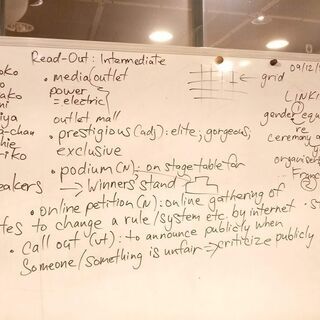 Read-Out: Intermediate
09/12/
oko
o
ako
mi
iya
a-chan
hie
riko
• media outlet
power
= electric
outlet mall
• prestigious (adj): elite; gorgeous;
exclusive
• podium (n): on stage-table for
eakers → Winners stand
• online petition (n): online gathering of
tes to change a rule/system etc. by internet
• call out (vt): to announce publicly when
someone/something is unfair → criticize publicly
← grid
LINK
gender equ
re
ceremony
organiser
Fran
• S